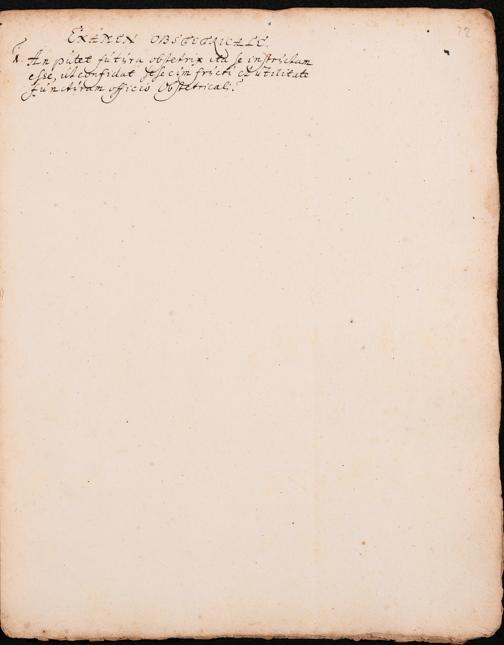 EXAMEN OBSTETRICALE.
1. An putet futura obstetrix ita se instructam
esse, ut confidat sese cum fructu et utilitate
functuram officio Obstetricali?